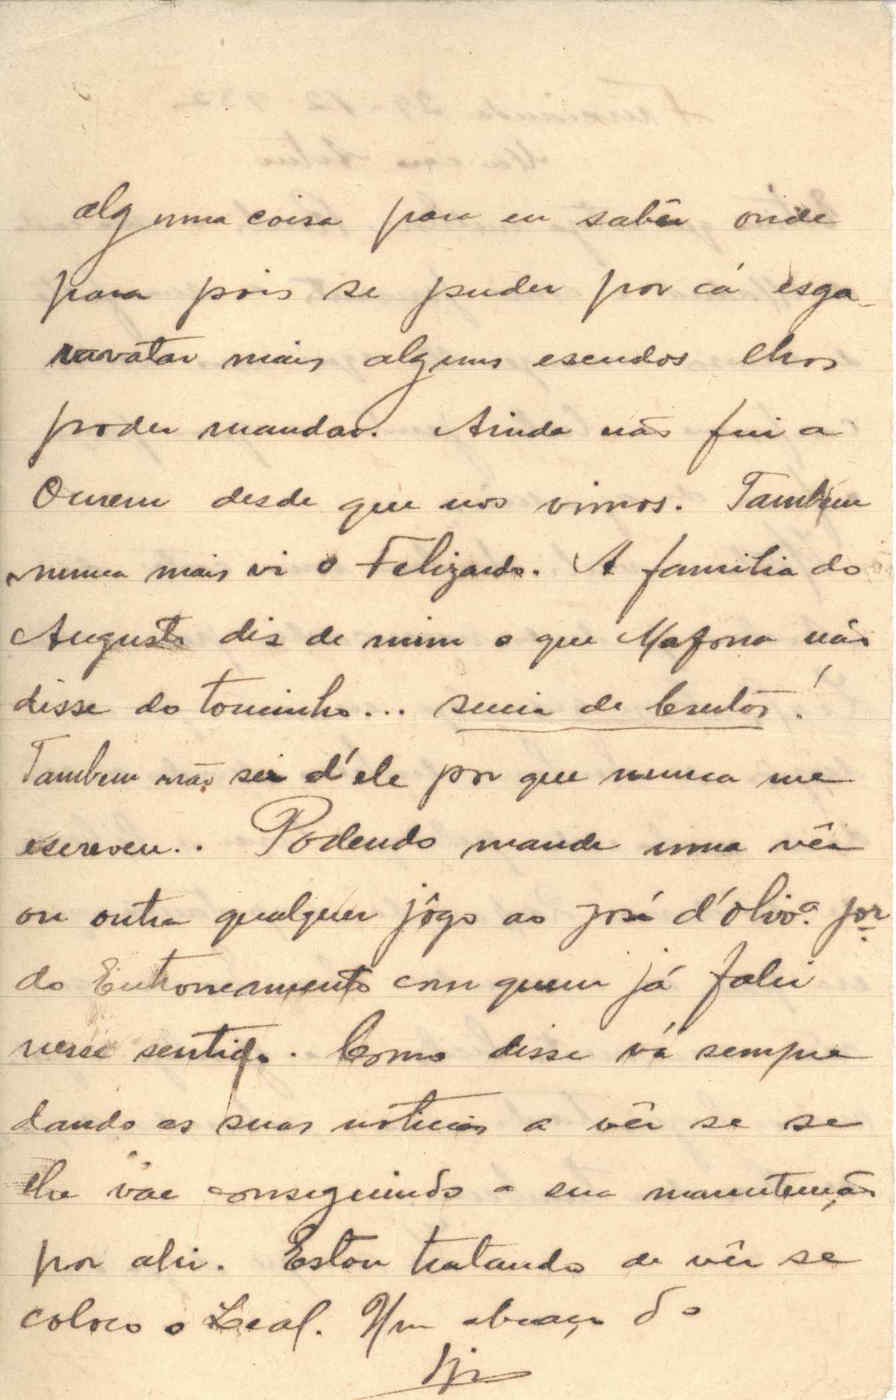 alguma coisa para eu sabêr onde
para pois se puder por cá esga-
ravatar mais alguns escudos lhos
poder mandar. Ainda não fui a
Ourem desde que nos vimos. Tambem
nunca mais vi o Felizardo. A familia do
Augusto diz de mim o que Mafoma não
disse do toucinho... sucia de
Tambem não sei d'ele por que nunca me
escreveu.. Podendo mande uma vêz
ou outra qualquer jôgo ao José d'Olivª. jor
do Entroncamento com quem já falei
nesse sentido. Como disse vá sempre
dando as suas nóticias a vêr se se
lhe vae conseguindo a sua manutenção
por ahi. Estou tratando de vêr se
coloco o Leal. Um abraço do